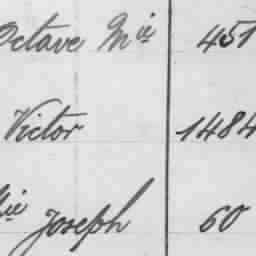 Octave Mie 451
Victor 1484
Mie Joseph 60